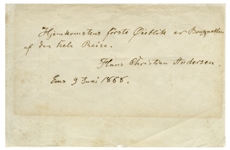 Hjemkomstens første Øieblik er Bouquetten
af den hele Reise.
Hans Christian Andersen
9 Juni 1868.